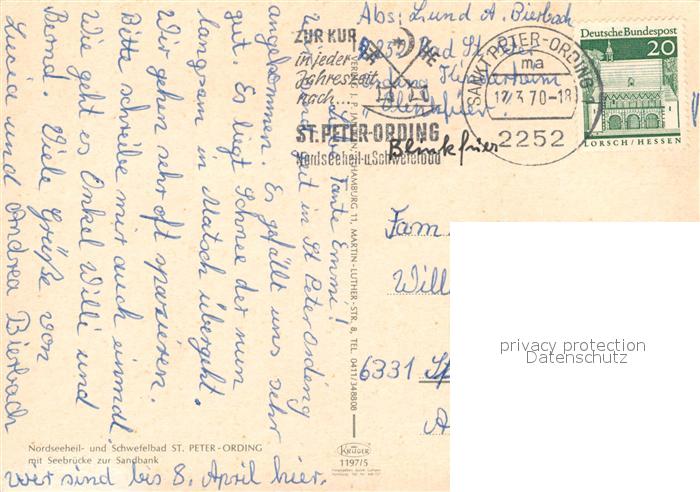 Abs: L. und A. Bierbach
2252 Bad St. Peter
Ording Kinderheim
"Blinkfüer"
Blinkfüer
ZUR KUR
in jeder
Jahreszeit
nach....
ST. PETER-ORDING
Nordseeheil-u.Schwefelbad
SANKT PETER-ORDING
ma
12.3.70-18
2252
Deutsche Bundespost
20
LORSCH/HESSEN
Liebe Tante Emmi!
Wir sind gut in St Peter Ording
angekommen. Es gefällt uns sehr
gut. Es liegt Schnee der nun
langsam in Matsch übergeht.
Wir gehen sehr oft spazieren.
Bitte schreibe mir auch einmal.
Wie geht es Onkel Willi und
Bernd. Viele Grüße von
Lucia und Andrea Bierbach
wir sind bis 8. April hier.
Fam
Will
6331
A
VERLAG J. P. HAMBURG 11, MARTIN-LUTHER-STR. 8, TEL. 0411/348808
Nordseeheil- und Schwefelbad ST. PETER-ORDING
mit Seebrücke zur Sandbank
KRÜGER
1197/5
privacy protection
Datenschutz